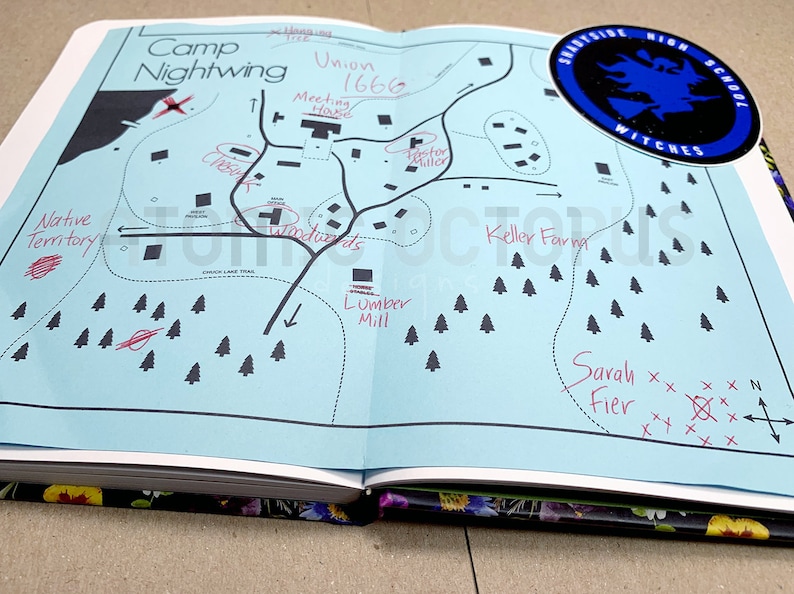 x Hanging
Tree
Camp
Nightwing
Union
1666
SHADYSIDE HIGH SCHOOL
WITCHES
Meeting
House
Pastor
Miller
MAIN
OFFICE
WEST
PAVILION
EAST
PAVILION
Native
Territory
Woodwards
Keller Farm
ATOMIC OCTOPUS
designs
CHUCK LAKE TRAIL
HORSE
STABLES
Lumber
Mill
Sarah
Fier
N